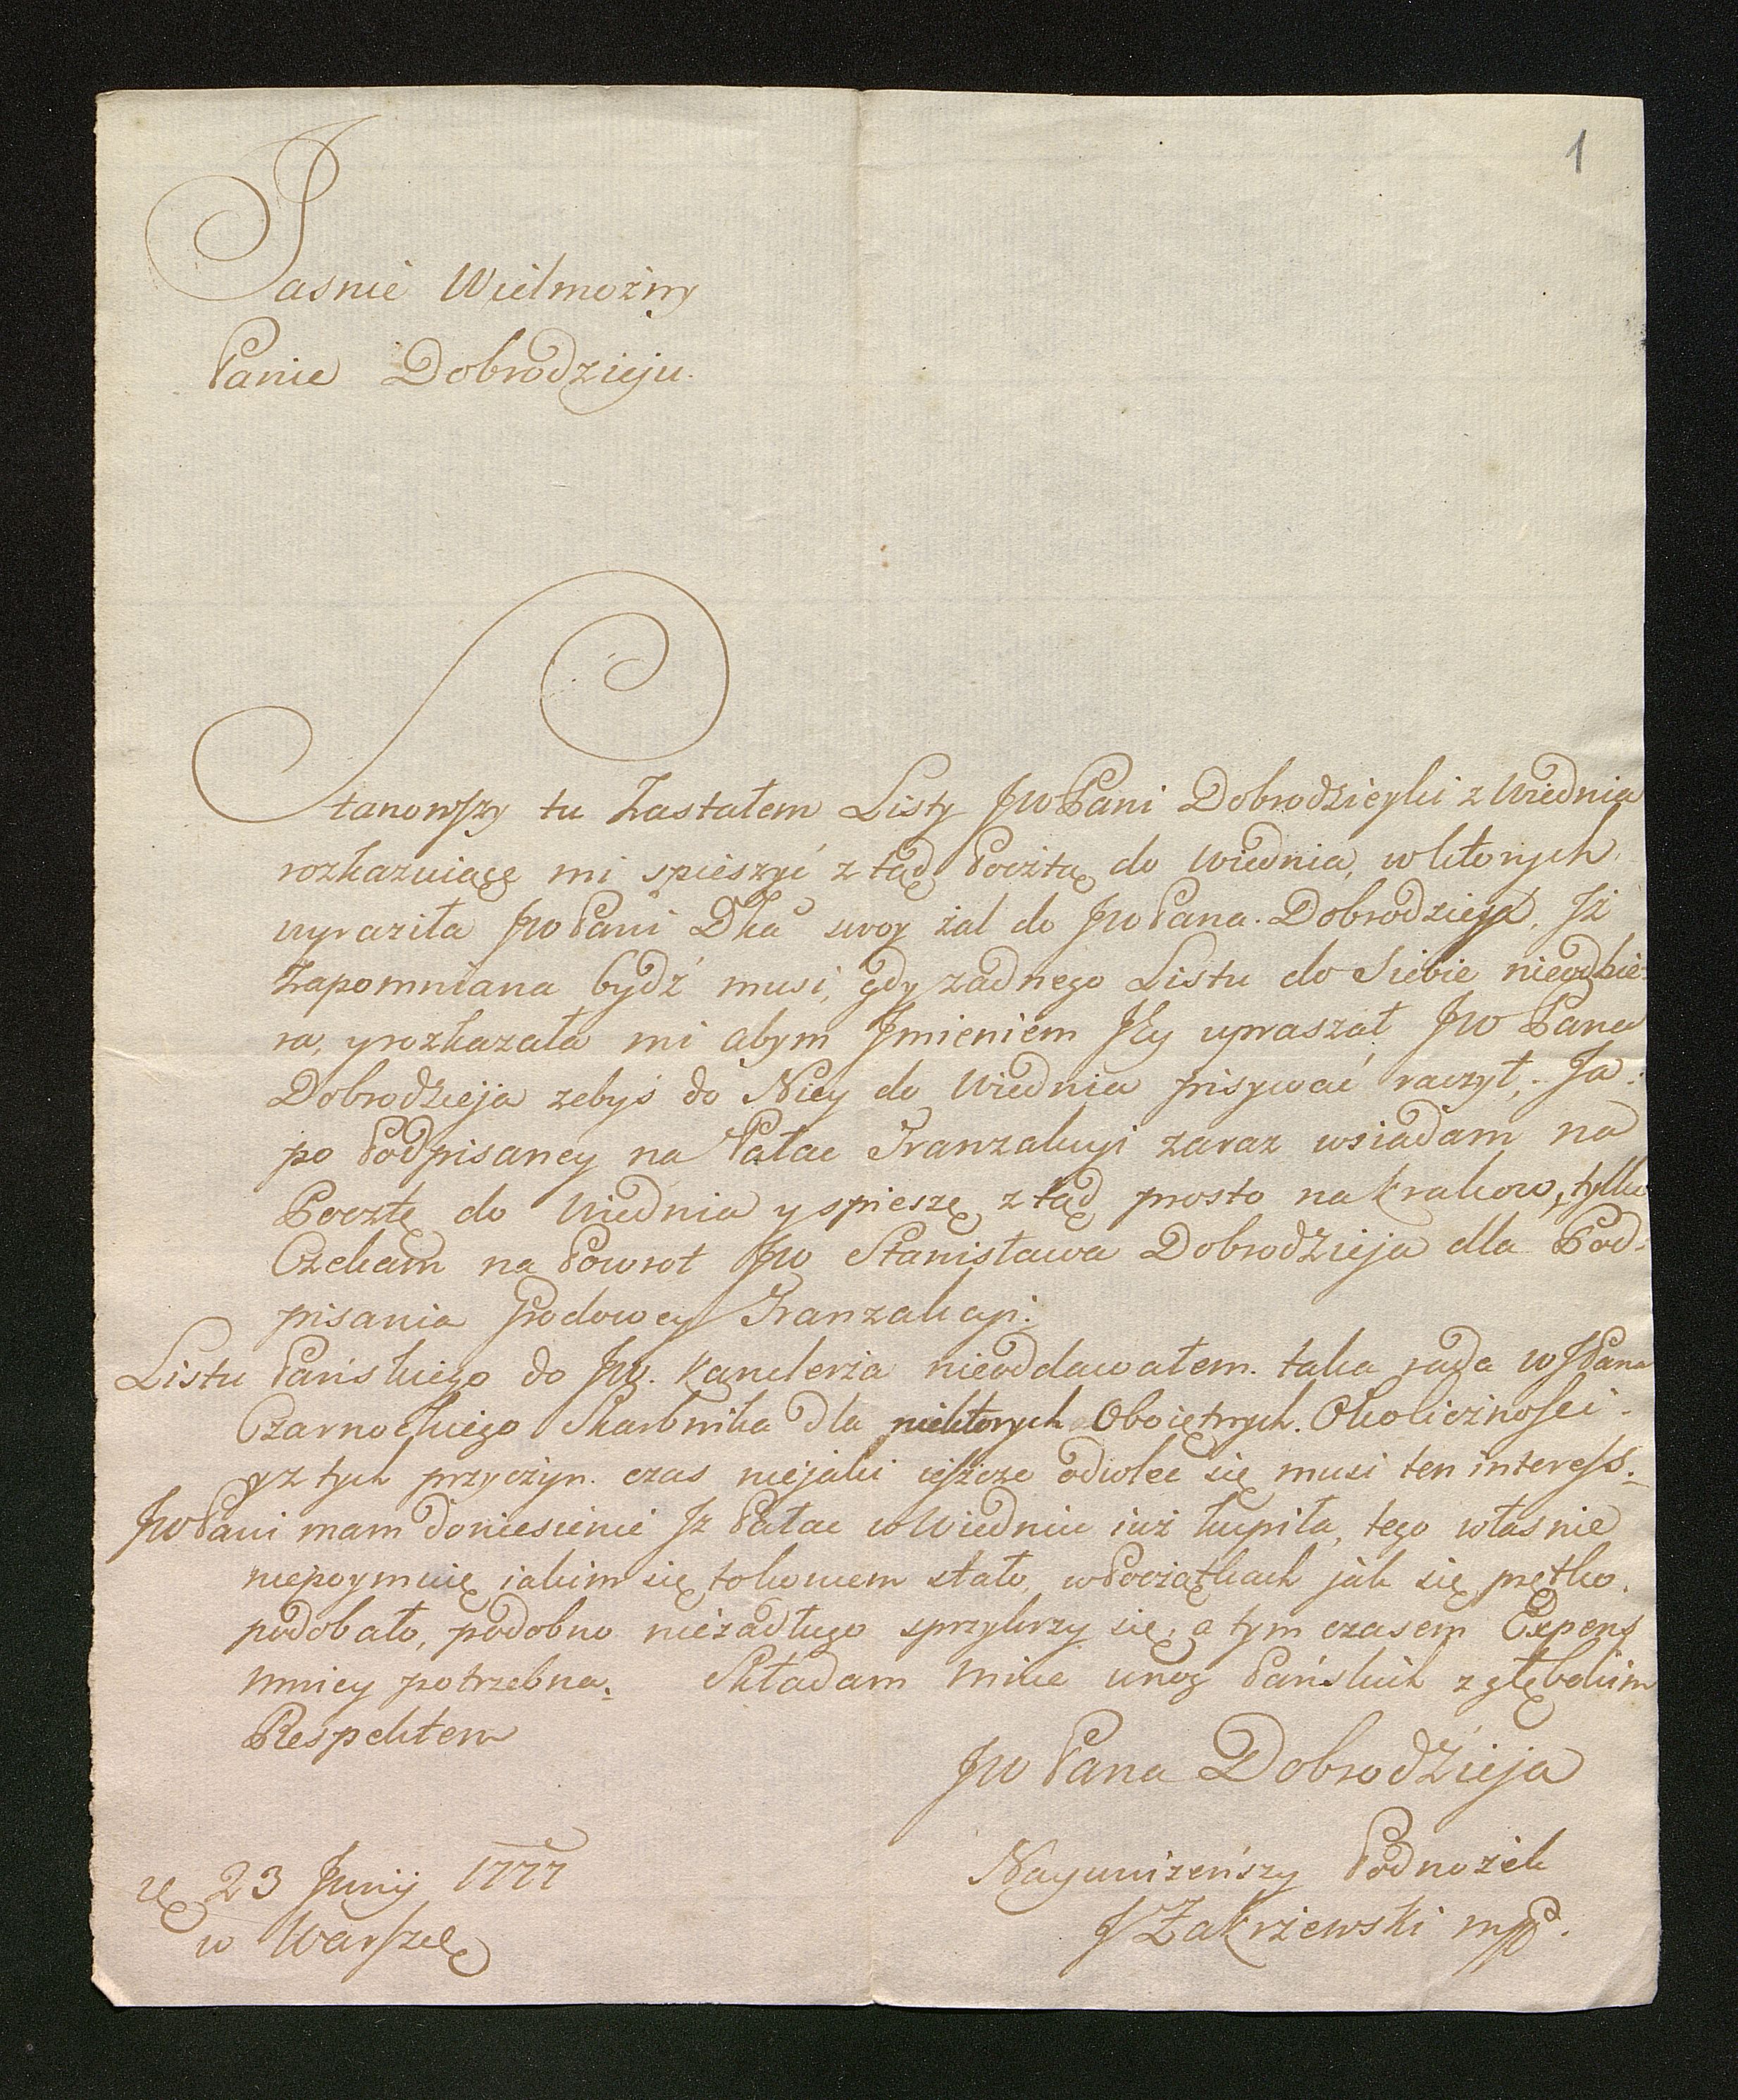 1
Jasnie Wielmożny
Panie Dobrodzieju.
Stanowszy tu Zastałem Listy JW Pani Dobrodzieyki z Wiednia
rozkazuiące mi spieszyć z tąd Pocztą do Wiednia, w ktorych
wyraziła JW Pani Dka swoy żal do JW Pana Dobrodzieja, Jż
Zapomniana bydź musi, gdy zadnego Listu do Siebie nieodbie-
ra, y rozkazała mi abym Jmieniem Jey upraszał JW Pana
Dobrodzieja zebyś do Niey do Wiednia pisywać raczył, Ja
po Podpisaney na Pałac Tranzakcyi zaraz wsiadam na
Pocztę do Wiednia y spieszę z tąd prosto na Krakow, tylko
Czekam na Powrot JW Stanisława Dobrodzieja dla Pod-
pisania Grodowey Tranzakcyi.
Listu Pańskiego do JW. Kanclerza nieoddawałem. taka rada WJPana
Czarnockiego Skarbnika dla niektorych Oboiętnych Okolicznosci.
y z tych przyczyn. czas niejaki ieszcze odwlec się musi ten interess.
JW Pani mam doniesienie Jz Pałac w Wiedniu iuż kupiła, tego własnie
niepoymuię iakim się tokuiem stało, w Początkach jak się prętko
podobało, podobno niezadługo sprzykrzy się, a tym czasem Expens
mniey potrzebna. Składam mnie unog Pańskich z głębokim
Respektem
JW Pana Dobrodzieja
Nayunizeńszy Podnożek
J Zakrzewski mpp.
23 Junij 1777
w Warszɛ